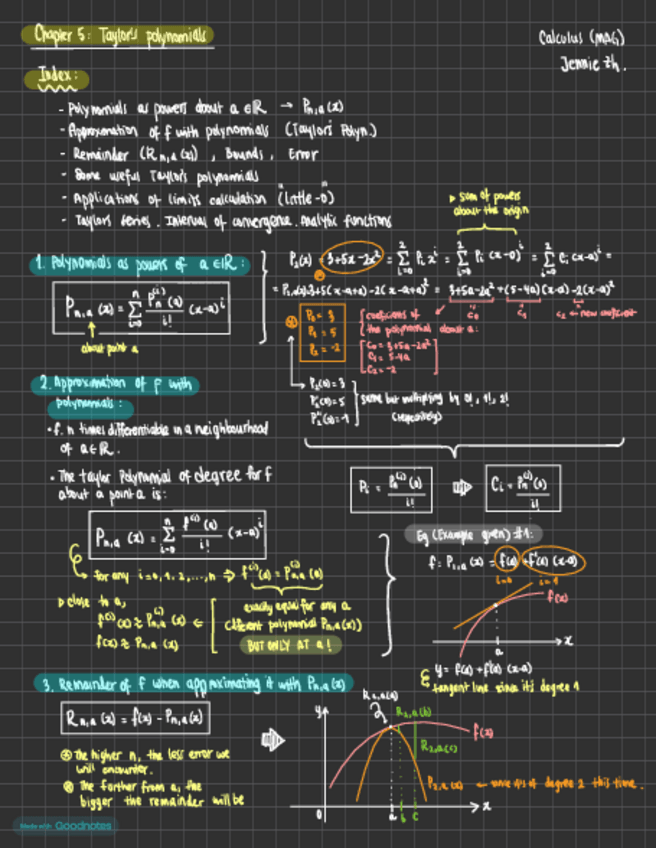 Chapter 5: Taylor's polynomials
Calculus (MAG)
Jennie Zh.
Index:
- Polynomials as powers about a ∈ ℝ → Pn,a (x)
- Approximation of f with polynomials (Taylor's Polyn.)
- Remainder (Rn,a (x)), Bounds, Error
- Some useful Taylor's polynomials
- Applications of limits calculation ("Little-o")
- Taylor's Series. Interval of convergence. Analytic functions
▸ sum of powers
about the origin
1. Polynomials as powers of a ∈ ℝ:
Pn,a (x) = Σ(i=0 to n) Pn^(i)(a)/i! (x-a)^i
about point a
P2(x) = 3+5x-2x² = Σ(i=0 to 2) Pi x^i = Σ(i=0 to 2) Pi (x-0)^i = Σ(i=0 to 2) Ci (x-a)^i =
= P2,a(x) 3+5(x-a+a)-2(x-a+a)² = 3+5a-2a²+(5-4a)(x-a)-2(x-a)²
C0 C1 C2 → new coefficient
P0 = 3
P1 = 5
P2 = -2
coeficients of
the polynomial about a:
C0 = 3+5a-2a²
C1 = 5-4a
C2 = -2
P2(0) = 3
P2'(0) = 5
same but multiplying by 0!, 1!, 2!
(respectively)
Pi = Pn^(i)(0)/i! ⇒ Ci = Pn^(i)(a)/i!
2. Approximation of f with
polynomials:
• f. n times differentiable in a neighbourhood
of a ∈ ℝ.
• The Taylor Polynomial of degree for f
about a point a is:
Pn,a (x) = Σ(i=0 to n) f^(i)(a)/i! (x-a)^i
for any i=0,1,2,...,n ⇒ f^(i)(a) = Pn,a^(i)(a)
▷ close to a,
f^(i)(x) ≈ Pn,a^(i)(x) ⇐
f(x) ≈ Pn,a (x)
exactly equal for any a
(different polynomial Pn,a(x))
BUT ONLY AT a!
Eg (Example given) #1:
f: P1,a (x) = f(a) + f'(a)(x-a)
i=0 i=1
f(x)
a
x
y = f(a)+f'(a) (x-a)
tangent line since it's degree 1
3. Remainder of f when approximating it with Pn,a (x)
Rn,a (x) = f(x) - Pn,a (x)
The higher n, the less error we
will encounter.
The farther from a, the
bigger the remainder will be
y
R2,a(a)
R2,a(b)
f(x)
R2,a(c)
P2,a (x) ← since it's of degree 2 this time.
0
a b c
x
Made with Goodnotes